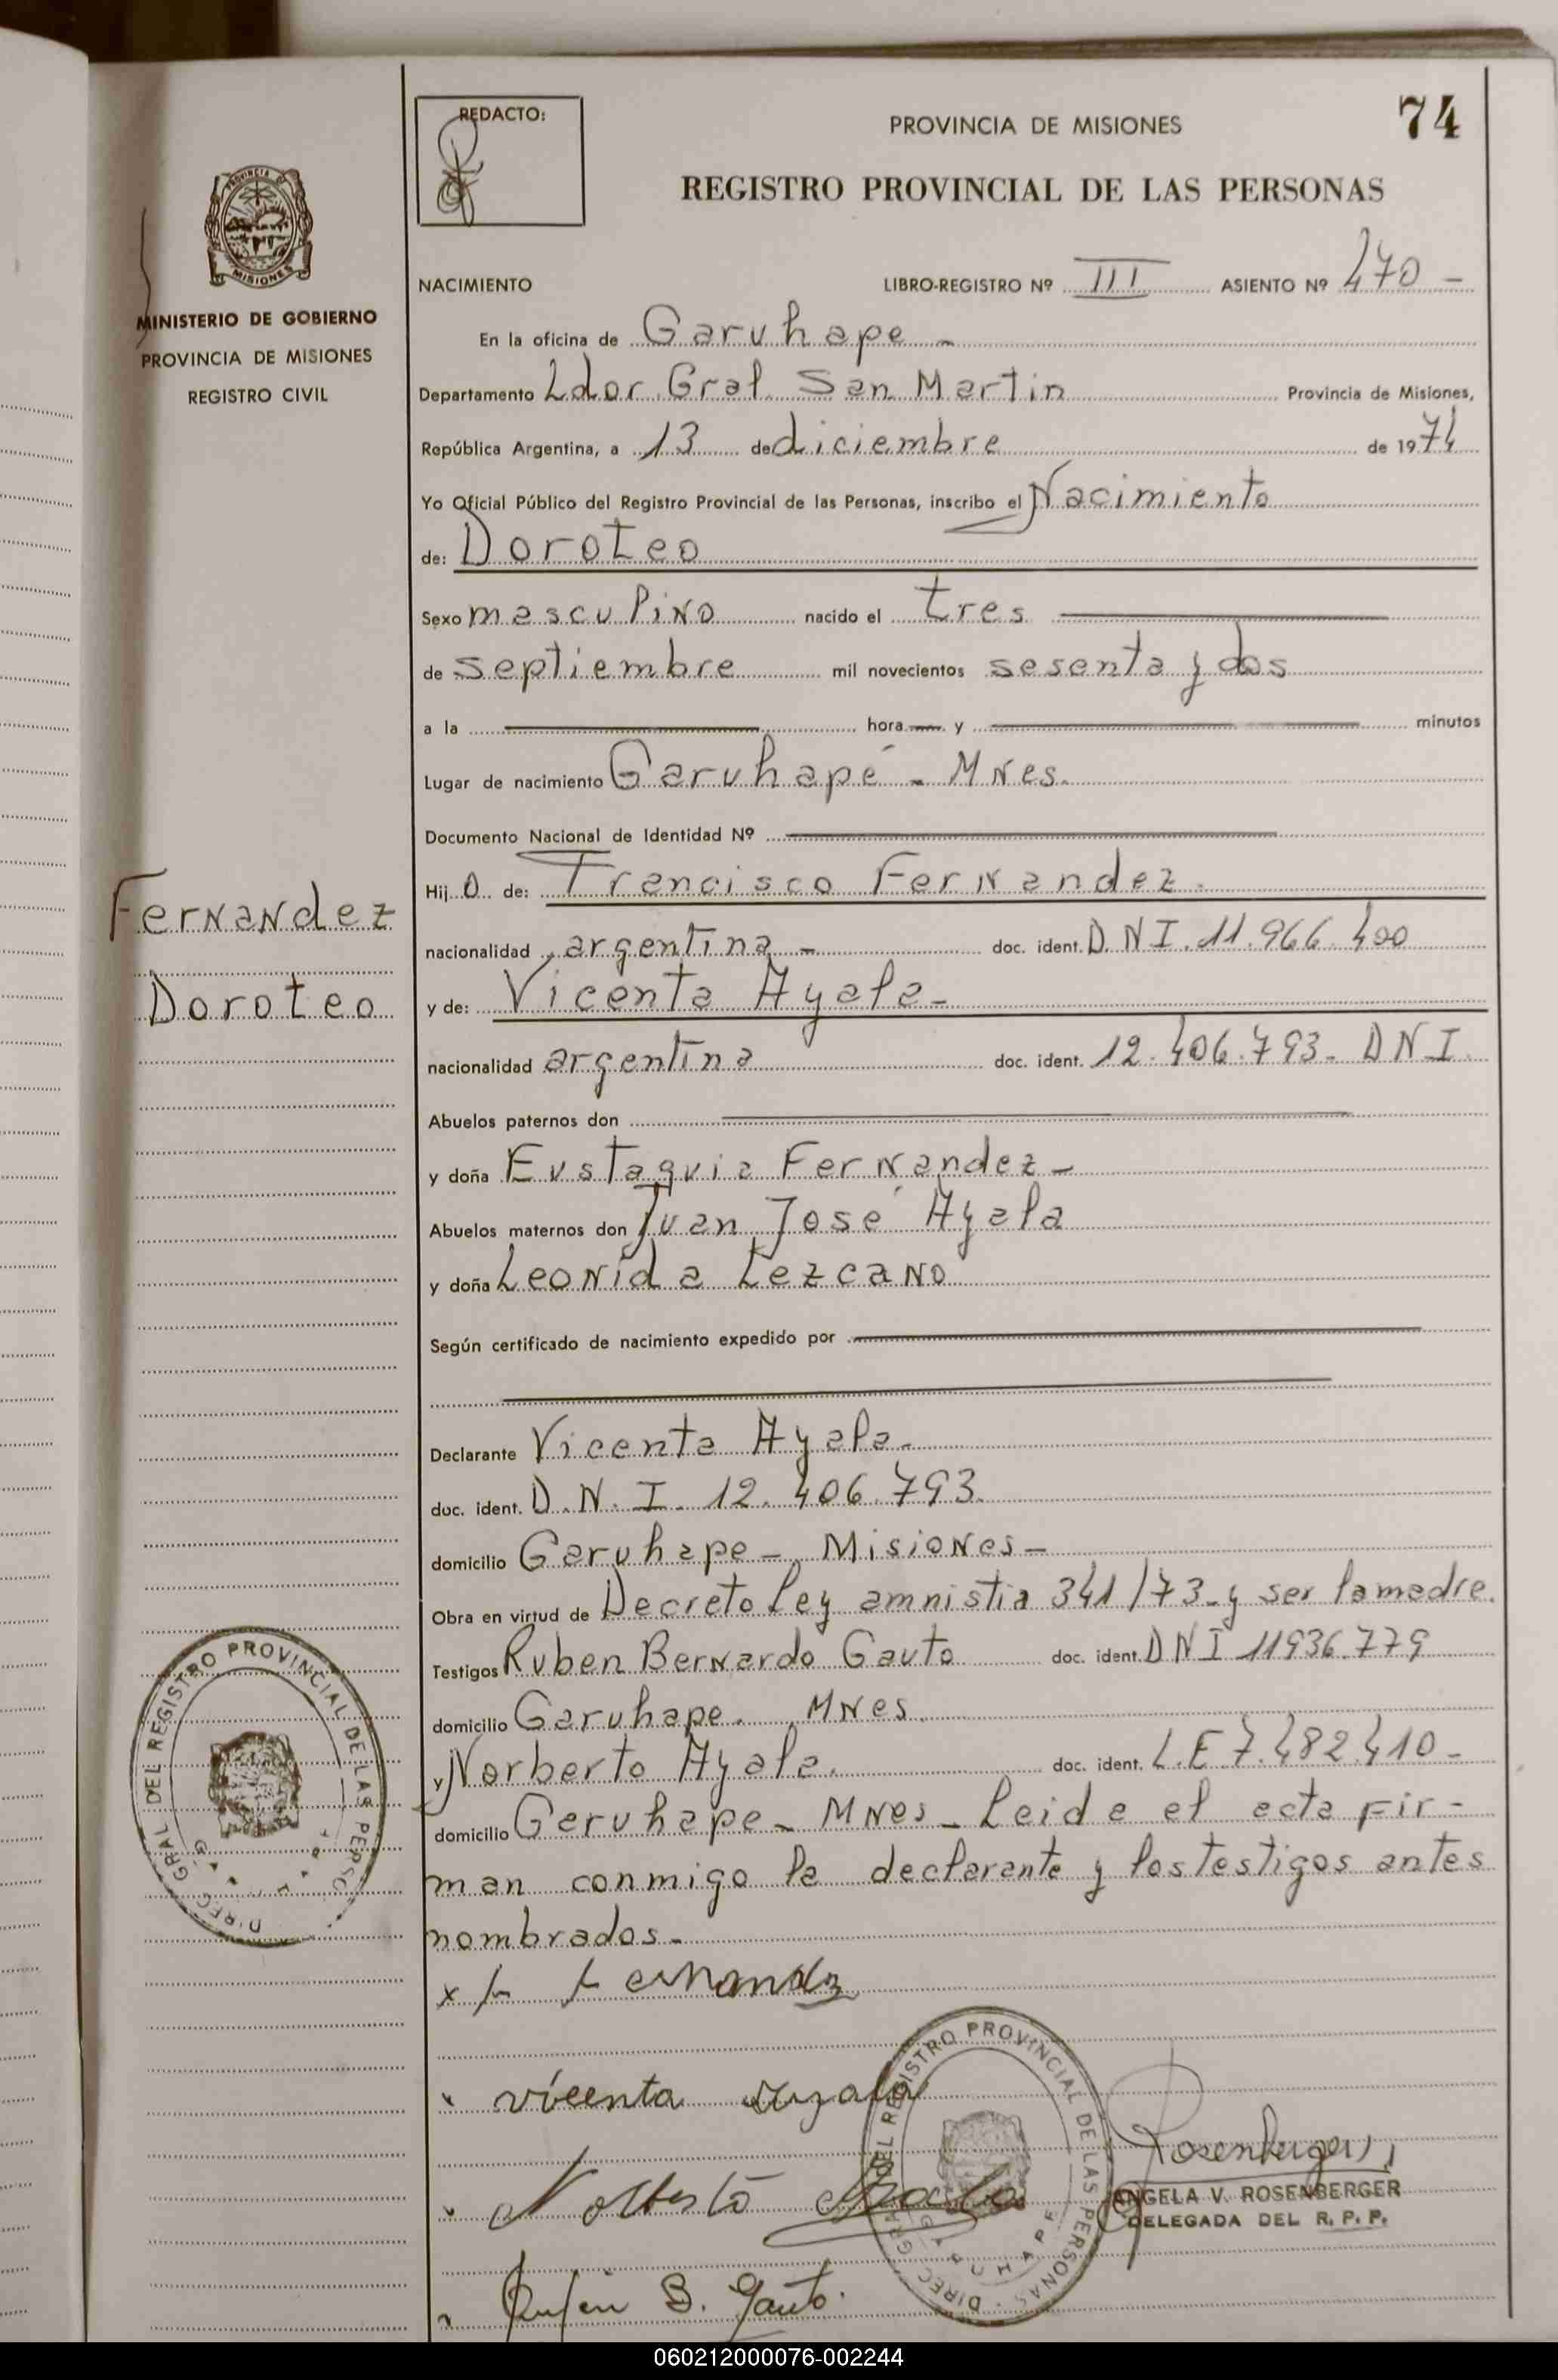 REDACTO:
PROVINCIA DE MISIONES
74
REGISTRO PROVINCIAL DE LAS PERSONAS
PROVINCIA DE
MISIONES
MINISTERIO DE GOBIERNO
PROVINCIA DE MISIONES
REGISTRO CIVIL
NACIMIENTO LIBRO-REGISTRO Nº III ASIENTO Nº 470 -
En la oficina de Garuhape -
Departamento Ldor Gral San Martin Provincia de Misiones,
República Argentina, a 13 de diciembre de 1974
Yo Oficial Público del Registro Provincial de las Personas, inscribo el Nacimiento
de: Doroteo
Sexo masculino nacido el tres
de septiembre mil novecientos sesenta y dos
a la hora y minutos
Lugar de nacimiento Garuhapé - MNes.
Documento Nacional de Identidad Nº
Hijo de: Francisco Fernandez.
Fernandez
Doroteo
nacionalidad argentina - doc. ident. D.N.I. 11.966.400
y de: Vicenta Ayala -
nacionalidad argentina doc. ident. 12.406.793 - DNI.
Abuelos paternos don
y doña Eustaquia Fernandez -
Abuelos maternos don Juan José Ayala
y doña Leonida Lezcano
Según certificado de nacimiento expedido por
Declarante Vicenta Ayala.
doc. ident. D.N.I. 12.406.793.
domicilio Garuhape - Misiones -
Obra en virtud de Decreto ley amnistia 341/73 - y ser la madre.
Testigos Ruben Bernardo Gauto doc. ident. DNI 11936.779
domicilio Garuhape. MNes.
y Norberto Ayala. doc. ident. L.E 7.482.410 -
domicilio Garuhape - MNes - Leida el acta fir-
man conmigo la declarante y los testigos antes
nombrados -
DIREC. GRAL DEL REGISTRO PROVINCIAL DE LAS PERSO
x F Fernandez
vicenta ayala
Norberto Ayala
DIREC GRAL DEL REGISTRO PROVINCIAL DE LAS PERSONAS
GARUHAPE
Rosenberger
ANGELA V. ROSENBERGER
DELEGADA DEL R. P. P.
Ruben B. Gauto.
060212000076-002244